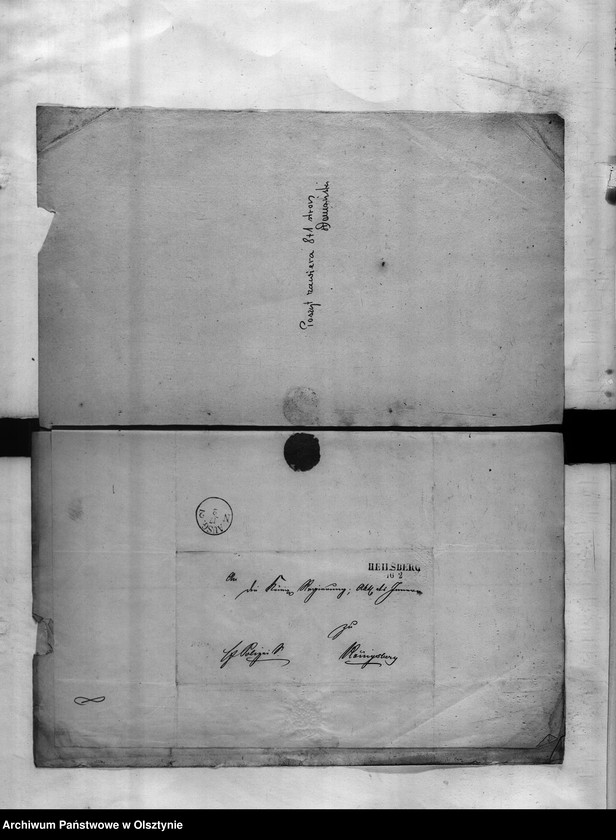 Poszyt zawiera 8+1 stron
N. AUSG. 2
17
2
HEILSBERG
16 2
An
die Königl Regierung, Abth. des Innern
zu
Königsberg
Archiwum Państwowe w Olsztynie